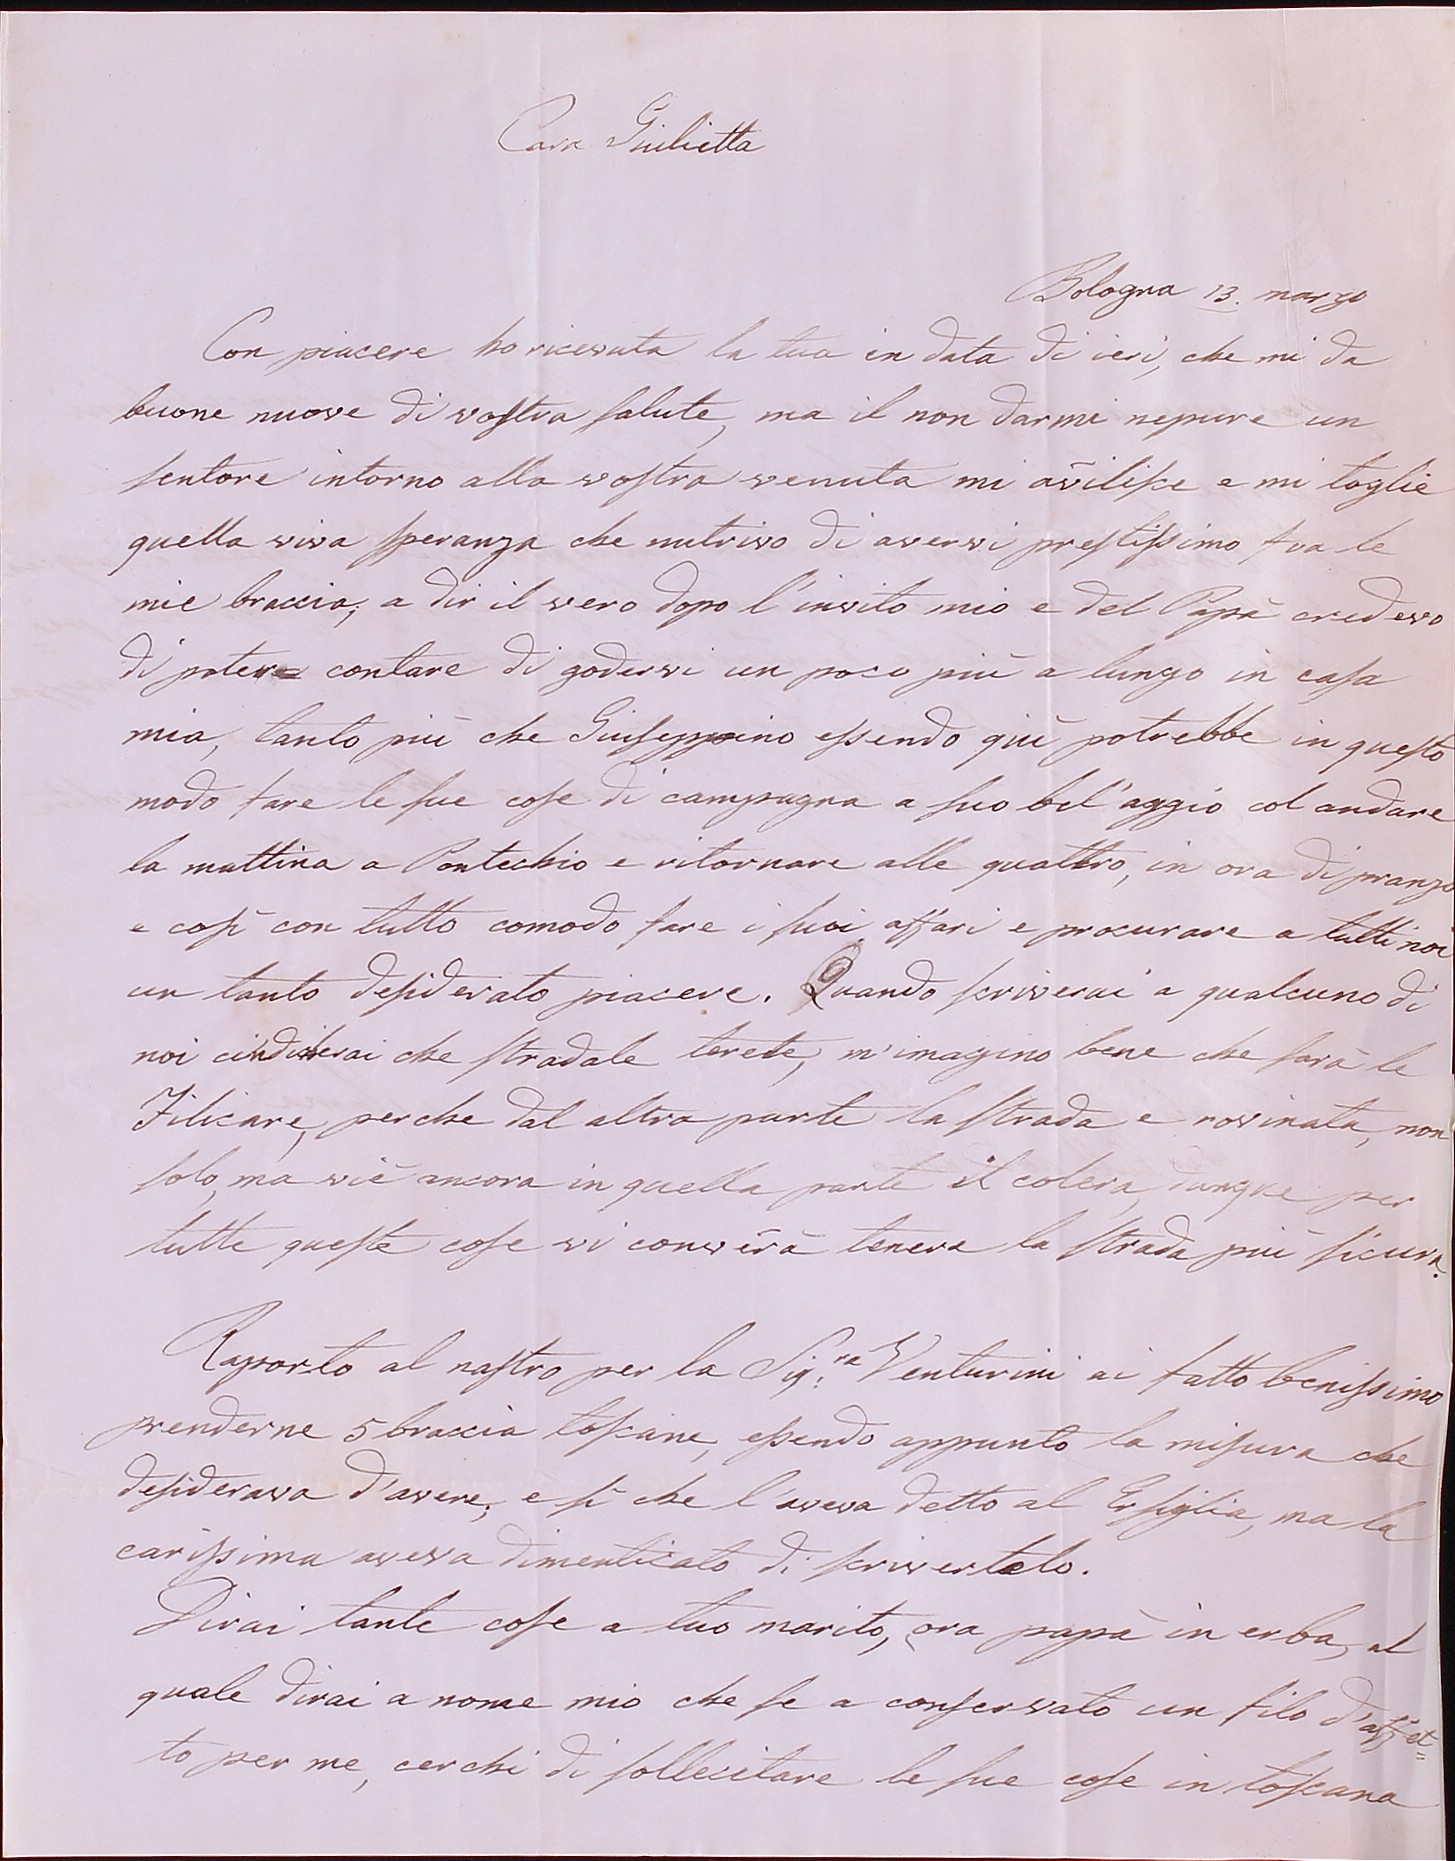 Cara Giulietta
Bologna 13. marzo
Con piacere ho ricevuta la tua in data di ieri, che mi da
buone nuove di vostra salute, ma il non darmi nepure un
sentore intorno alla vostra venuta mi avilisce e mi toglie
quella viva speranza che nutrivo di avervi prestissimo fra le
mie braccia; a dir il vero dopo l'invito mio e del Papà credevo
di potere contare di godervi un poco più a lungo in casa
mia, tanto più che Giuseppino essendo quì potrebbe in questo
modo fare le sue cose di campagna a suo bel'aggio col andare
la mattina a Pontechio e ritornare alle quattro, in ora di pranzo
e così con tutto comodo fare i suoi affari e procurare a tutti noi
un tanto desiderato piacere. Quando scriverai a qualcuno di
noi ci che stradale terete, m'imagino bene che sarà le
Filicare, perche dal altra parte la strada e rovinata, non
solo, ma viè ancora in quella parte il colera, dunque per
tutte queste cose vi converà tenere la strada più sicura.
Raporto al nastro per la Sig:ra Venturini ai fatto benissimo
prenderne 5 braccia toscane, essendo appunto la misura che
desiderava d'avere; e sì che l'aveva detto al Ersiglia, ma la
carissima aveva dimenticato di scrivertelo.
Dirai tante cose a tuo marito, ora papà in erba, al
quale dirai a nome mio che se a conservato un filo d'affet=
to per me, cerchi di sollecitare le sue cose in toscana